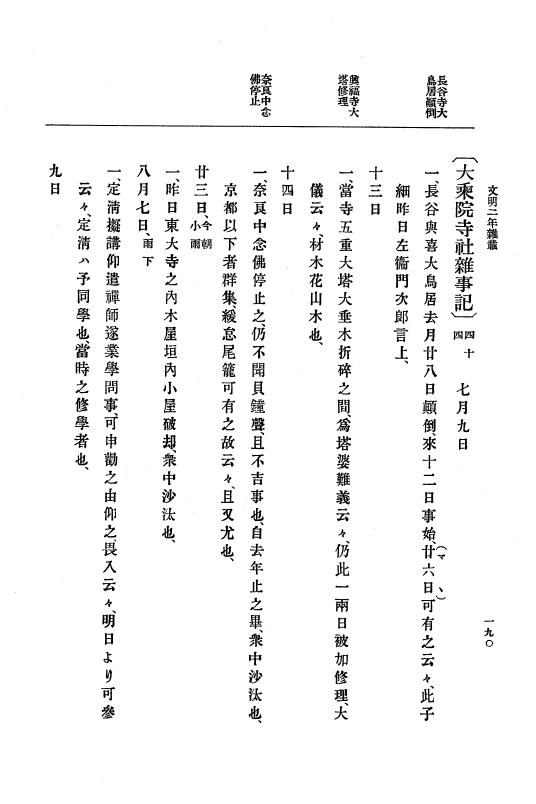 文明二年雜載
一九〇
〔大乘院寺社雜事記〕 四十四四 七月九日
長谷寺大鳥居顚倒
一、長谷與喜大鳥居去月廿八日顚倒、來十二日事始、廿六日(マヽ)可有之云々、此子
細昨日左衞門次郎言上、
十三日
興福寺大塔修理
一、當寺五重大塔大垂木折碎之間、爲塔婆難義云々、仍此一兩日被加修理、大
儀云々、材木花山木也、
十四日
奈良中念佛停止
一、奈良中念佛停止之、仍不聞貝鐘聲、且不吉事也、自去年止之畢、衆中沙汰也、
京都以下者群集、緩怠尾籠可有之故云々、且又尤也、
廿三日、今朝小雨
一、昨日東大寺之內木屋垣內小屋破却、衆中沙汰也、
八月七日、雨下
一、定淸擬講仰遣禪師遂業學問事、可申勸之由仰之、畏入云々、明日より可參
云々、定淸ハ予同學也、當時之修學者也、
九日